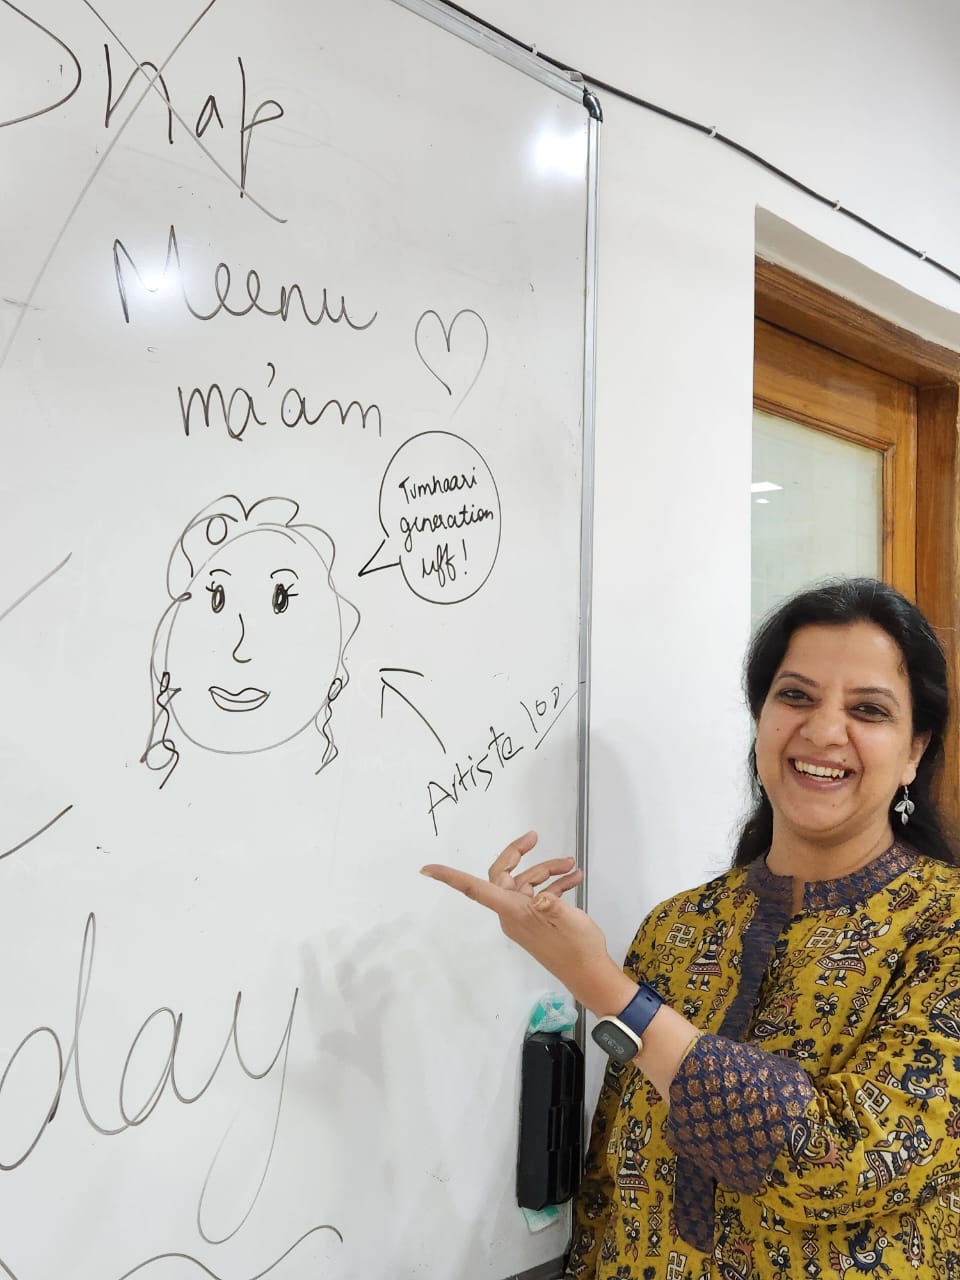 Snap
Meenu
ma'am
Tumhaari
generation
uff!
Artiste
day